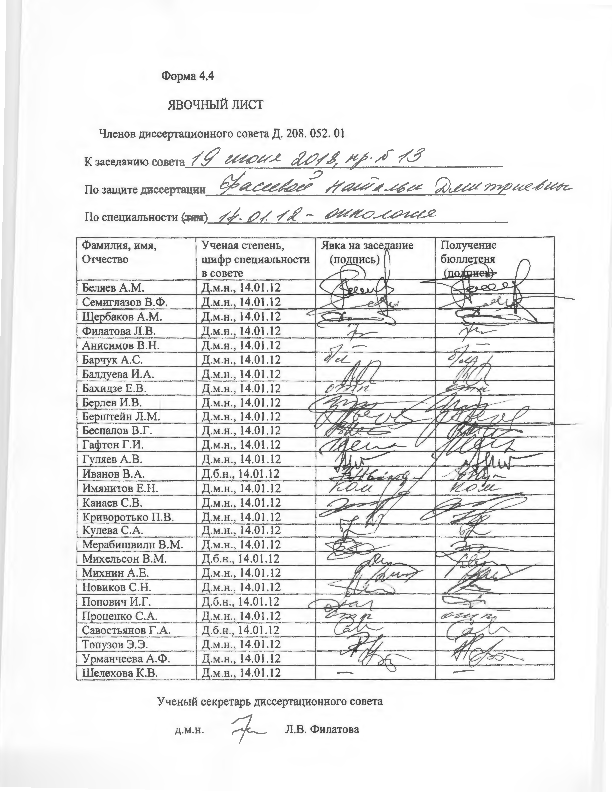 Форма 4.4
ЯВОЧНЫЙ ЛИСТ
Членов диссертационного совета Д. 208. 052. 01
К заседанию совета 19 июня 2018, пр. № 13
По защите диссертации Натальи Дмитриевны
По специальности 14.01.12 - онкология
Фамилия, имя, Отчество Ученая степень, шифр специальности в совете Явка на заседание (подпись) Получение бюллетеня (подпись)
Беляев А.М. Д.м.н., 14.01.12
Семиглазов В.Ф. Д.м.н., 14.01.12
Щербаков А.М. Д.м.н., 14.01.12
Филатова Л.В. Д.м.н., 14.01.12
Анисимов В.Н. Д.м.н., 14.01.12 – –
Барчук А.С. Д.м.н., 14.01.12
Балдуева И.А. Д.м.н., 14.01.12
Бахидзе Е.В. Д.м.н., 14.01.12
Берлев И.В. Д.м.н., 14.01.12
Берштейн Л.М. Д.м.н., 14.01.12
Беспалов В.Г. Д.м.н., 14.01.12
Гафтон Г.И. Д.м.н., 14.01.12
Гуляев А.В. Д.м.н., 14.01.12
Иванов В.А. Д.б.н., 14.01.12
Имянитов Е.Н. Д.м.н., 14.01.12
Канаев С.В. Д.м.н., 14.01.12
Криворотько П.В. Д.м.н., 14.01.12
Кулева С.А. Д.м.н., 14.01.12
Мерабишвили В.М. Д.м.н., 14.01.12
Михельсон В.М. Д.б.н., 14.01.12
Михнин А.Е. Д.м.н., 14.01.12
Новиков С.Н. Д.м.н., 14.01.12
Попович И.Г. Д.б.н., 14.01.12
Проценко С.А. Д.м.н., 14.01.12
Савостьянов Г.А. Д.б.н., 14.01.12
Топузов Э.Э. Д.м.н., 14.01.12
Урманчеева А.Ф. Д.м.н., 14.01.12
Шелехова К.В. Д.м.н., 14.01.12 – –
Ученый секретарь диссертационного совета
д.м.н. Л.В. Филатова